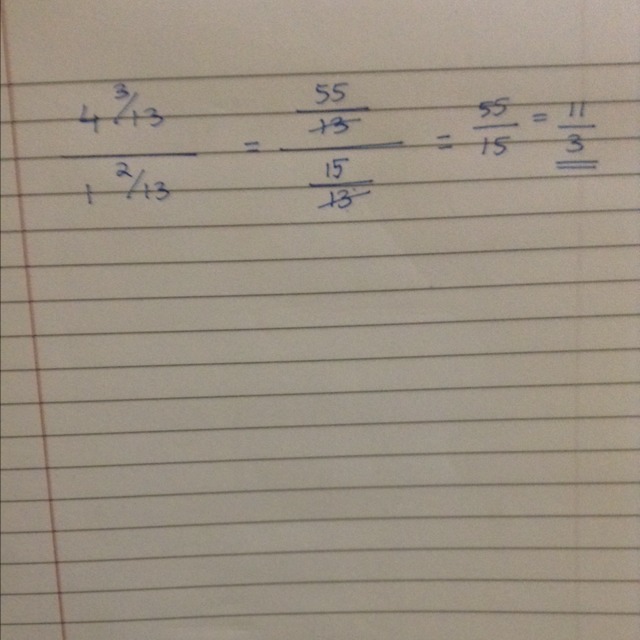 4 3/13 / 1 2/13 = 55/13 / 15/13 = 55/15 = 11/3